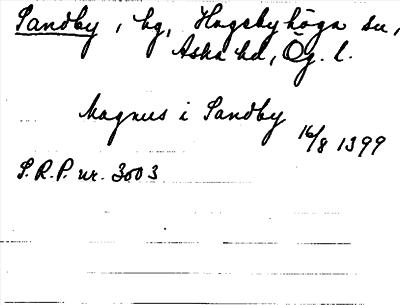 Sandby, by, Hagebyhöga sn,
Aska hd, Ög. l.
Magnus i Sandby
16/8 1399
S.R.P. nr. 3003